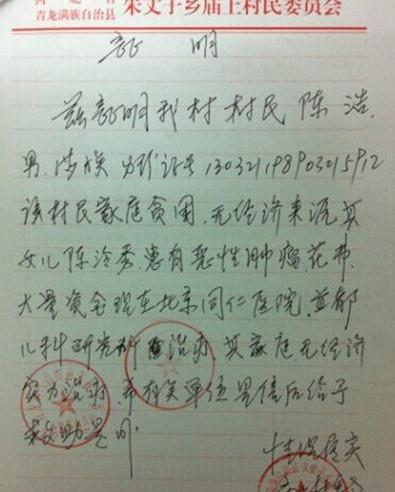 青龙满族自治县 朱丈子乡庙上村民委员会
证 明
兹证明我村村民陈浩,
男,汉族 身份证号130321198903215912
该村民家庭贫困,无经济来源其
女儿陈泠秀患有恶性肿瘤,花布
大量资金现在北京同仁医院,首都
儿科研究所治疗,其家庭无经济
实力治疗,希有关单位里信后给予
救助是盼
情况属实